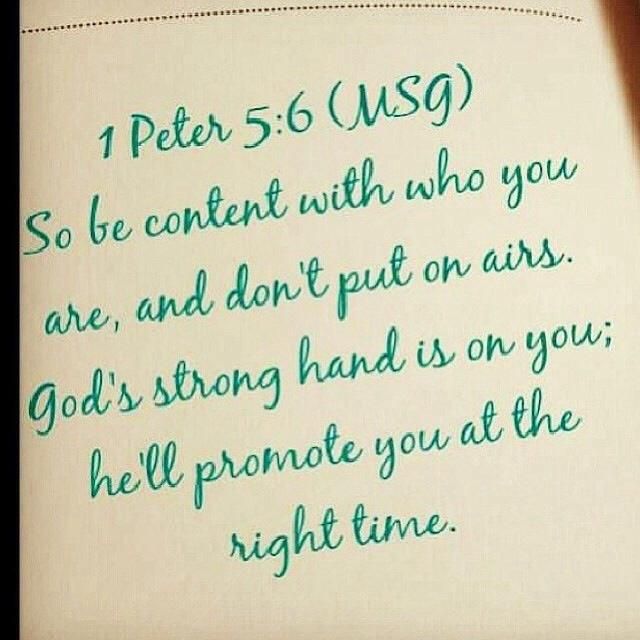 1 Peter 5:6 (MSG)
So be content with who you
are, and don't put on airs.
God's strong hand is on you;
he'll promote you at the
right time.